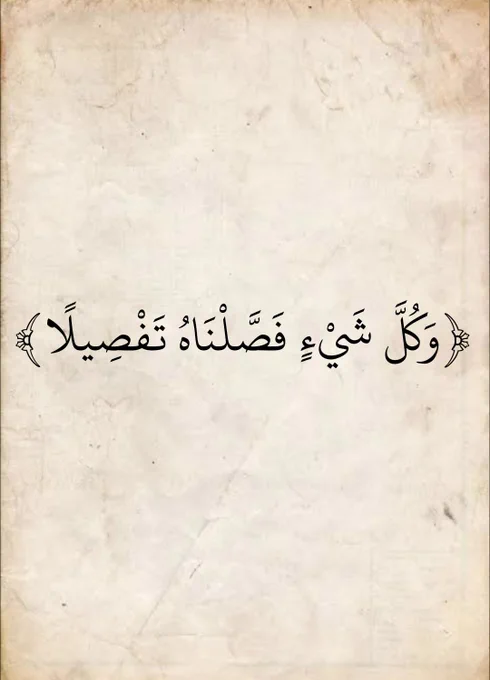 ﴿وَكُلَّ شَيْءٍ فَصَّلْنَاهُ تَفْصِيلًا﴾